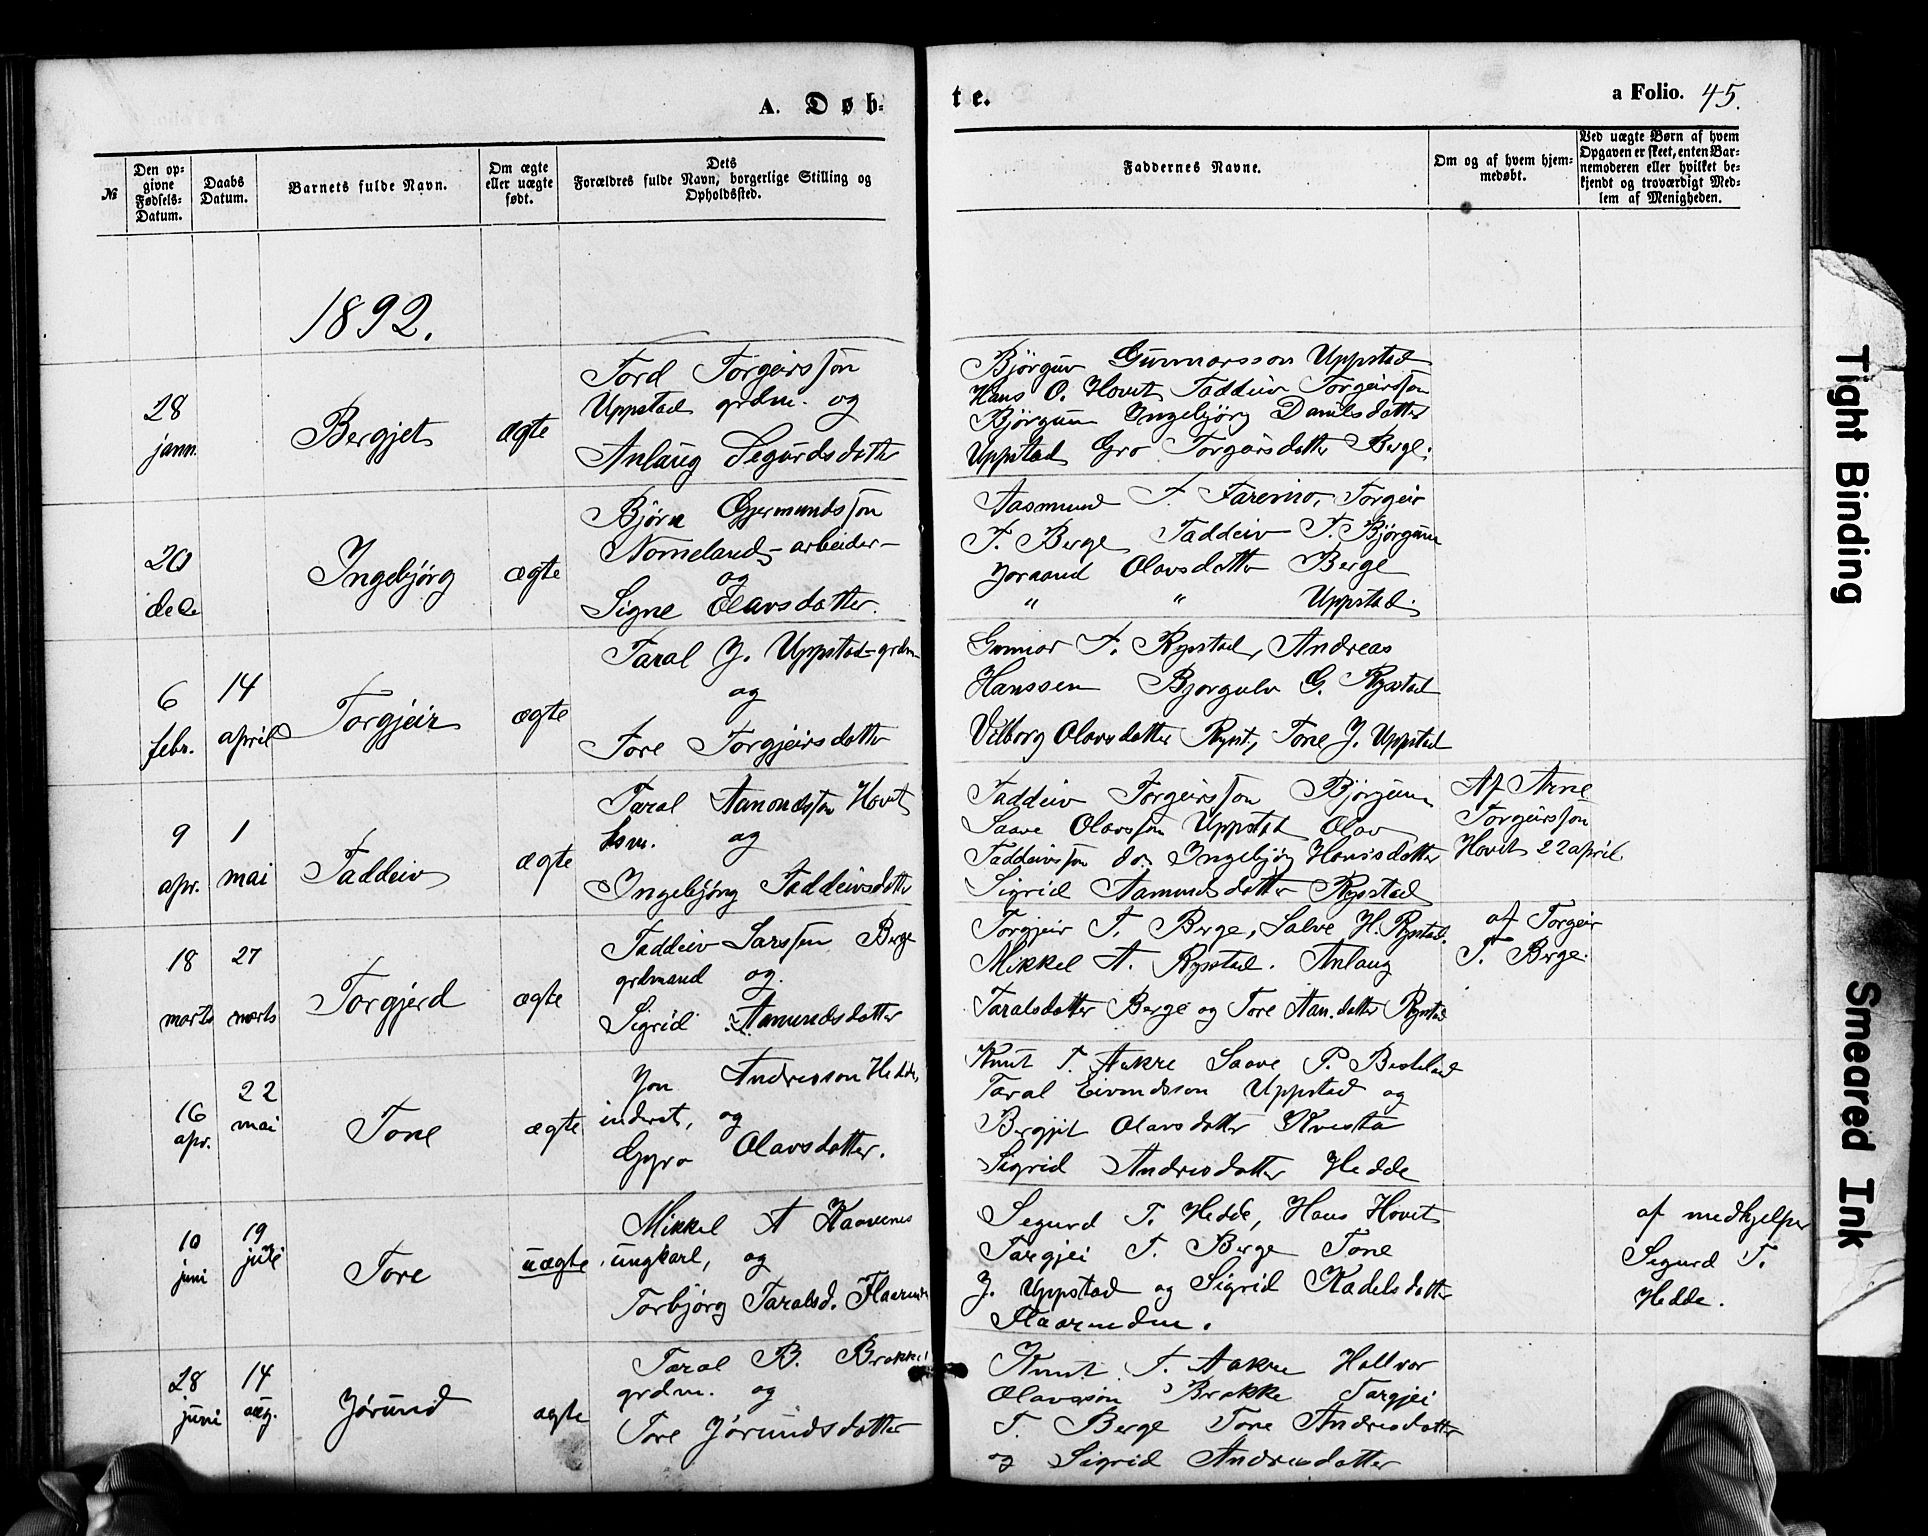 A. Døb-
te.
a Folio. 45.
№
Den op-
givne
Fødsels-
Datum.
Daabs
Datum.
Barnets fulde Navn.
Om ægte
eller uægte
født.
Dets
Forældres fulde Navn, borgerlige Stilling og
Opholdssted.
Faddernes Navne.
Om og af hvem hjem-
medøbt.
Ved uægte Børn af hvem
Opgaven er skeet, enten Bar-
nemoderen eller hvilket be-
kjendt og troværdigt Med-
lem af Menigheden.
1892.
28
jann.
Bergjet
ægte
Tord Torgeirsson
Uppstad grdm. og
Anlaug Segurdsdatter
Bjørguv Gunnarsson Uppstad
Hans O. Hovet Taddeiv Torgeirsson
Bjørgum Ingebjørg Danielsdatter
Uppstad Gro Torgeirsdatter Berge.
20
dece
Ingebjörg
ægte
Bjørn Gjermundsson
Nomeland - arbeider -
og
Signe Olavsdatter.
Aasmund T. Torgeir
T. Berge Taddeiv T. Bjørgum
Joraand Olavsdatter Berge
" " Uppstad.
6
febr.
14
april
Torgjeir
ægte
Taral J. Uppstad - grdm
og
Tore Torgjeirsdatter
Gunnar T. Rystad, Andreas
Hanssen Bjorgulv G. Rystad
Vilborg Olavsdatter Ryst, Tone J. Uppstad
9
apr.
1
mai
Taddeiv
ægte
Taral Aamondsson Hovet
hsm. og
Ingebjørg Taddeivsdatter
Taddeiv Torgeirsson Bjørgum
Saave Olavsson Uppstad Olav
Taddeivsson do, Ingebjørg Hansdatter
Sigrid Aamundsdatter Rysstad
Af Arne
Torgeirsson
Hovet 22 april
18
marts
27
marts
Torgjerd
ægte
Taddeiv Larssen Berge
grdmand og
Sigrid Aamundsdatter
Torgjeir T. Berge, Salve H. Rystad.
Mikkel A. Rysstad. Anlaug
Taralsdatter Berge og Tore Aan.datter Rystad
af Torgeir
T. Berge.
16
apr.
22
mai
Tone
ægte
Jon Andresson Hedde,
inderst, og
Gyro Olavsdatter.
Knut T. Aakre Saave P. Besteland
Taral Eivindsson Uppstad og
Bergjit Olavsdatter Kvesta
Sigrid Andresdatter Hedde
10
juni
19
jule
Tore
uægte
Mikkel A Kaavenes
ungkarl, og
Torbjørg Taralsd.
Segurd T. Hedde, Hans Hovet
Targjei T. Berge Tone
J. Uppstad og Sigrid Kadelsdatter
af medhjelper
Segurd T.
Hedde.
28
juni
14
aug.
Jørund
ægte
Taral B. Brokke
grdm. og
Tore Jørundsdatter
Knut T. Aakre Hallvor
Olavsson Brokke Targjei
T. Berge Tone Andresdatter
og Sigrid Andresdatter
Tight Binding
Smeared Ink